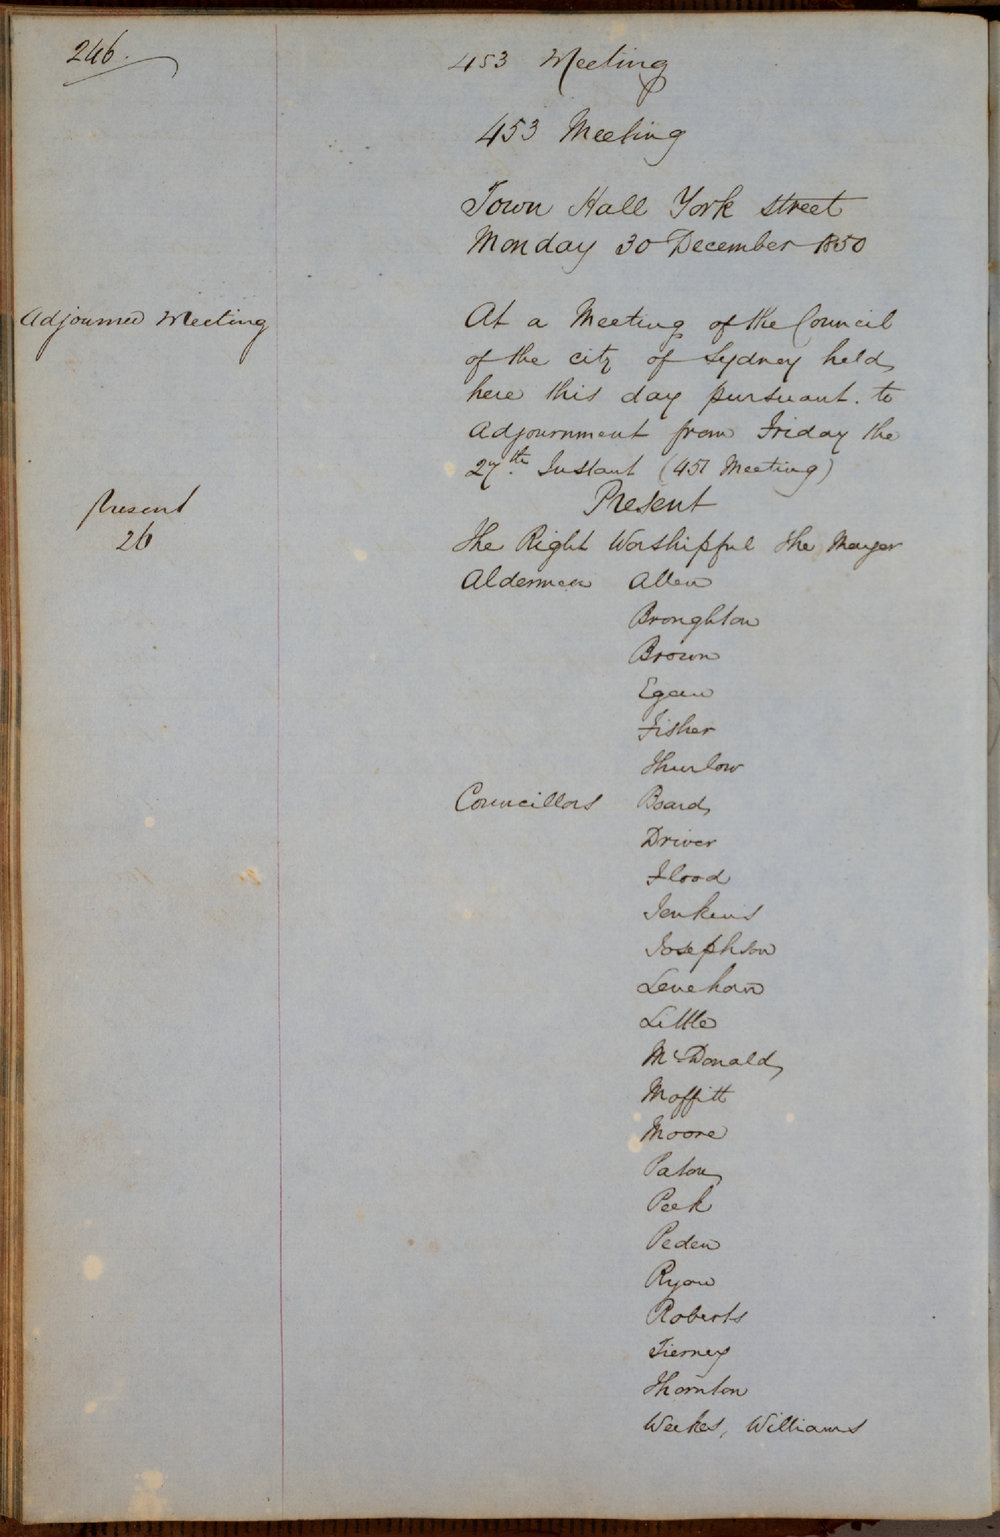 246.
453 Meeting
453 Meeting
Town Hall York Street
Monday 30 December 1850
Adjourned Meeting
At a Meeting of the Council
of the city of Sydney held
here this day pursuant. to
adjournment from Friday the
27th. Instant (451 Meeting)
Present
26
Present
The Right Worshipful The Mayor
Aldermen Allen
Broughton
Brown
Egan
Fisher
Thurlow
Councillors Board
Driver
Flood
Jenkins
Josephson
Levehan
Little
McDonald
Moffitt
Moore
Paton
Peek
Peden
Ryan
Roberts
Tierney
Thornton
Weekes, Williams